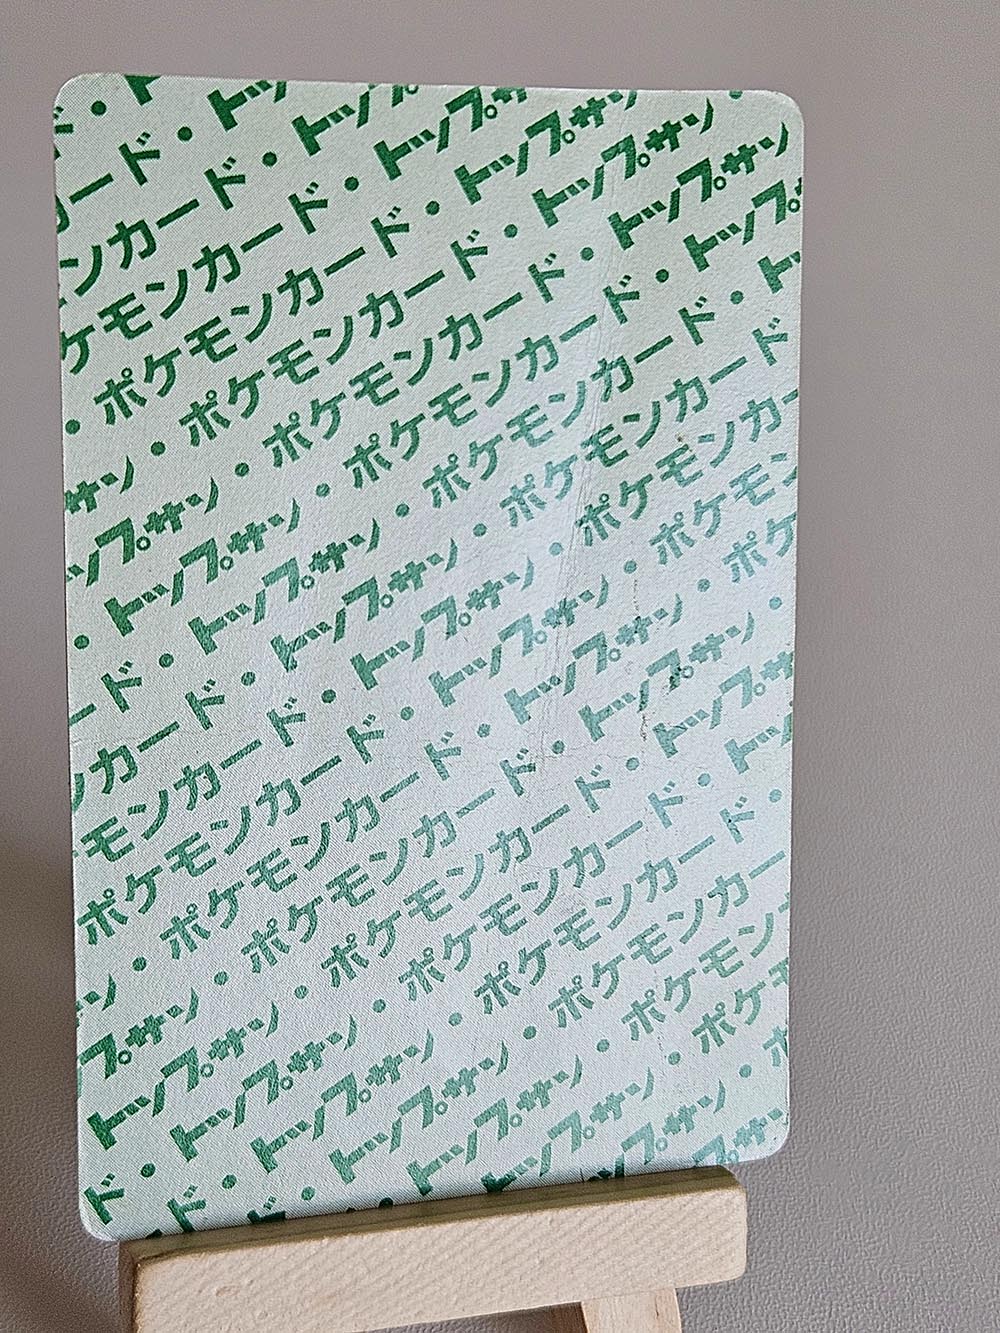 ド・ト
カード・トッ
ンカード・トップ
ケモンカード・トップサ
・ポケモンカード・トップサン
サン・ポケモンカード・トップサン
ップサン・ポケモンカード・トップサン
トップサン・ポケモンカード・トップ
・トップサン・ポケモンカード・トッ
ード・トップサン・ポケモンカード
ンカード・トップサン・ポケモンカー
モンカード・トップサン・ポケモン
ポケモンカード・トップサン・ポケ
サン・ポケモンカード・トップサン・
プサン・ポケモンカード・トップサ
トップサン・ポケモンカード・トッ
ド・トップサン・ポケモンカード・
ド・トップサン・ポケモンカード・
ド・トップサン・ポケモンカー
・トップサン・ポケモン
トップサン・ポケ
ップサン・ポ
プサ